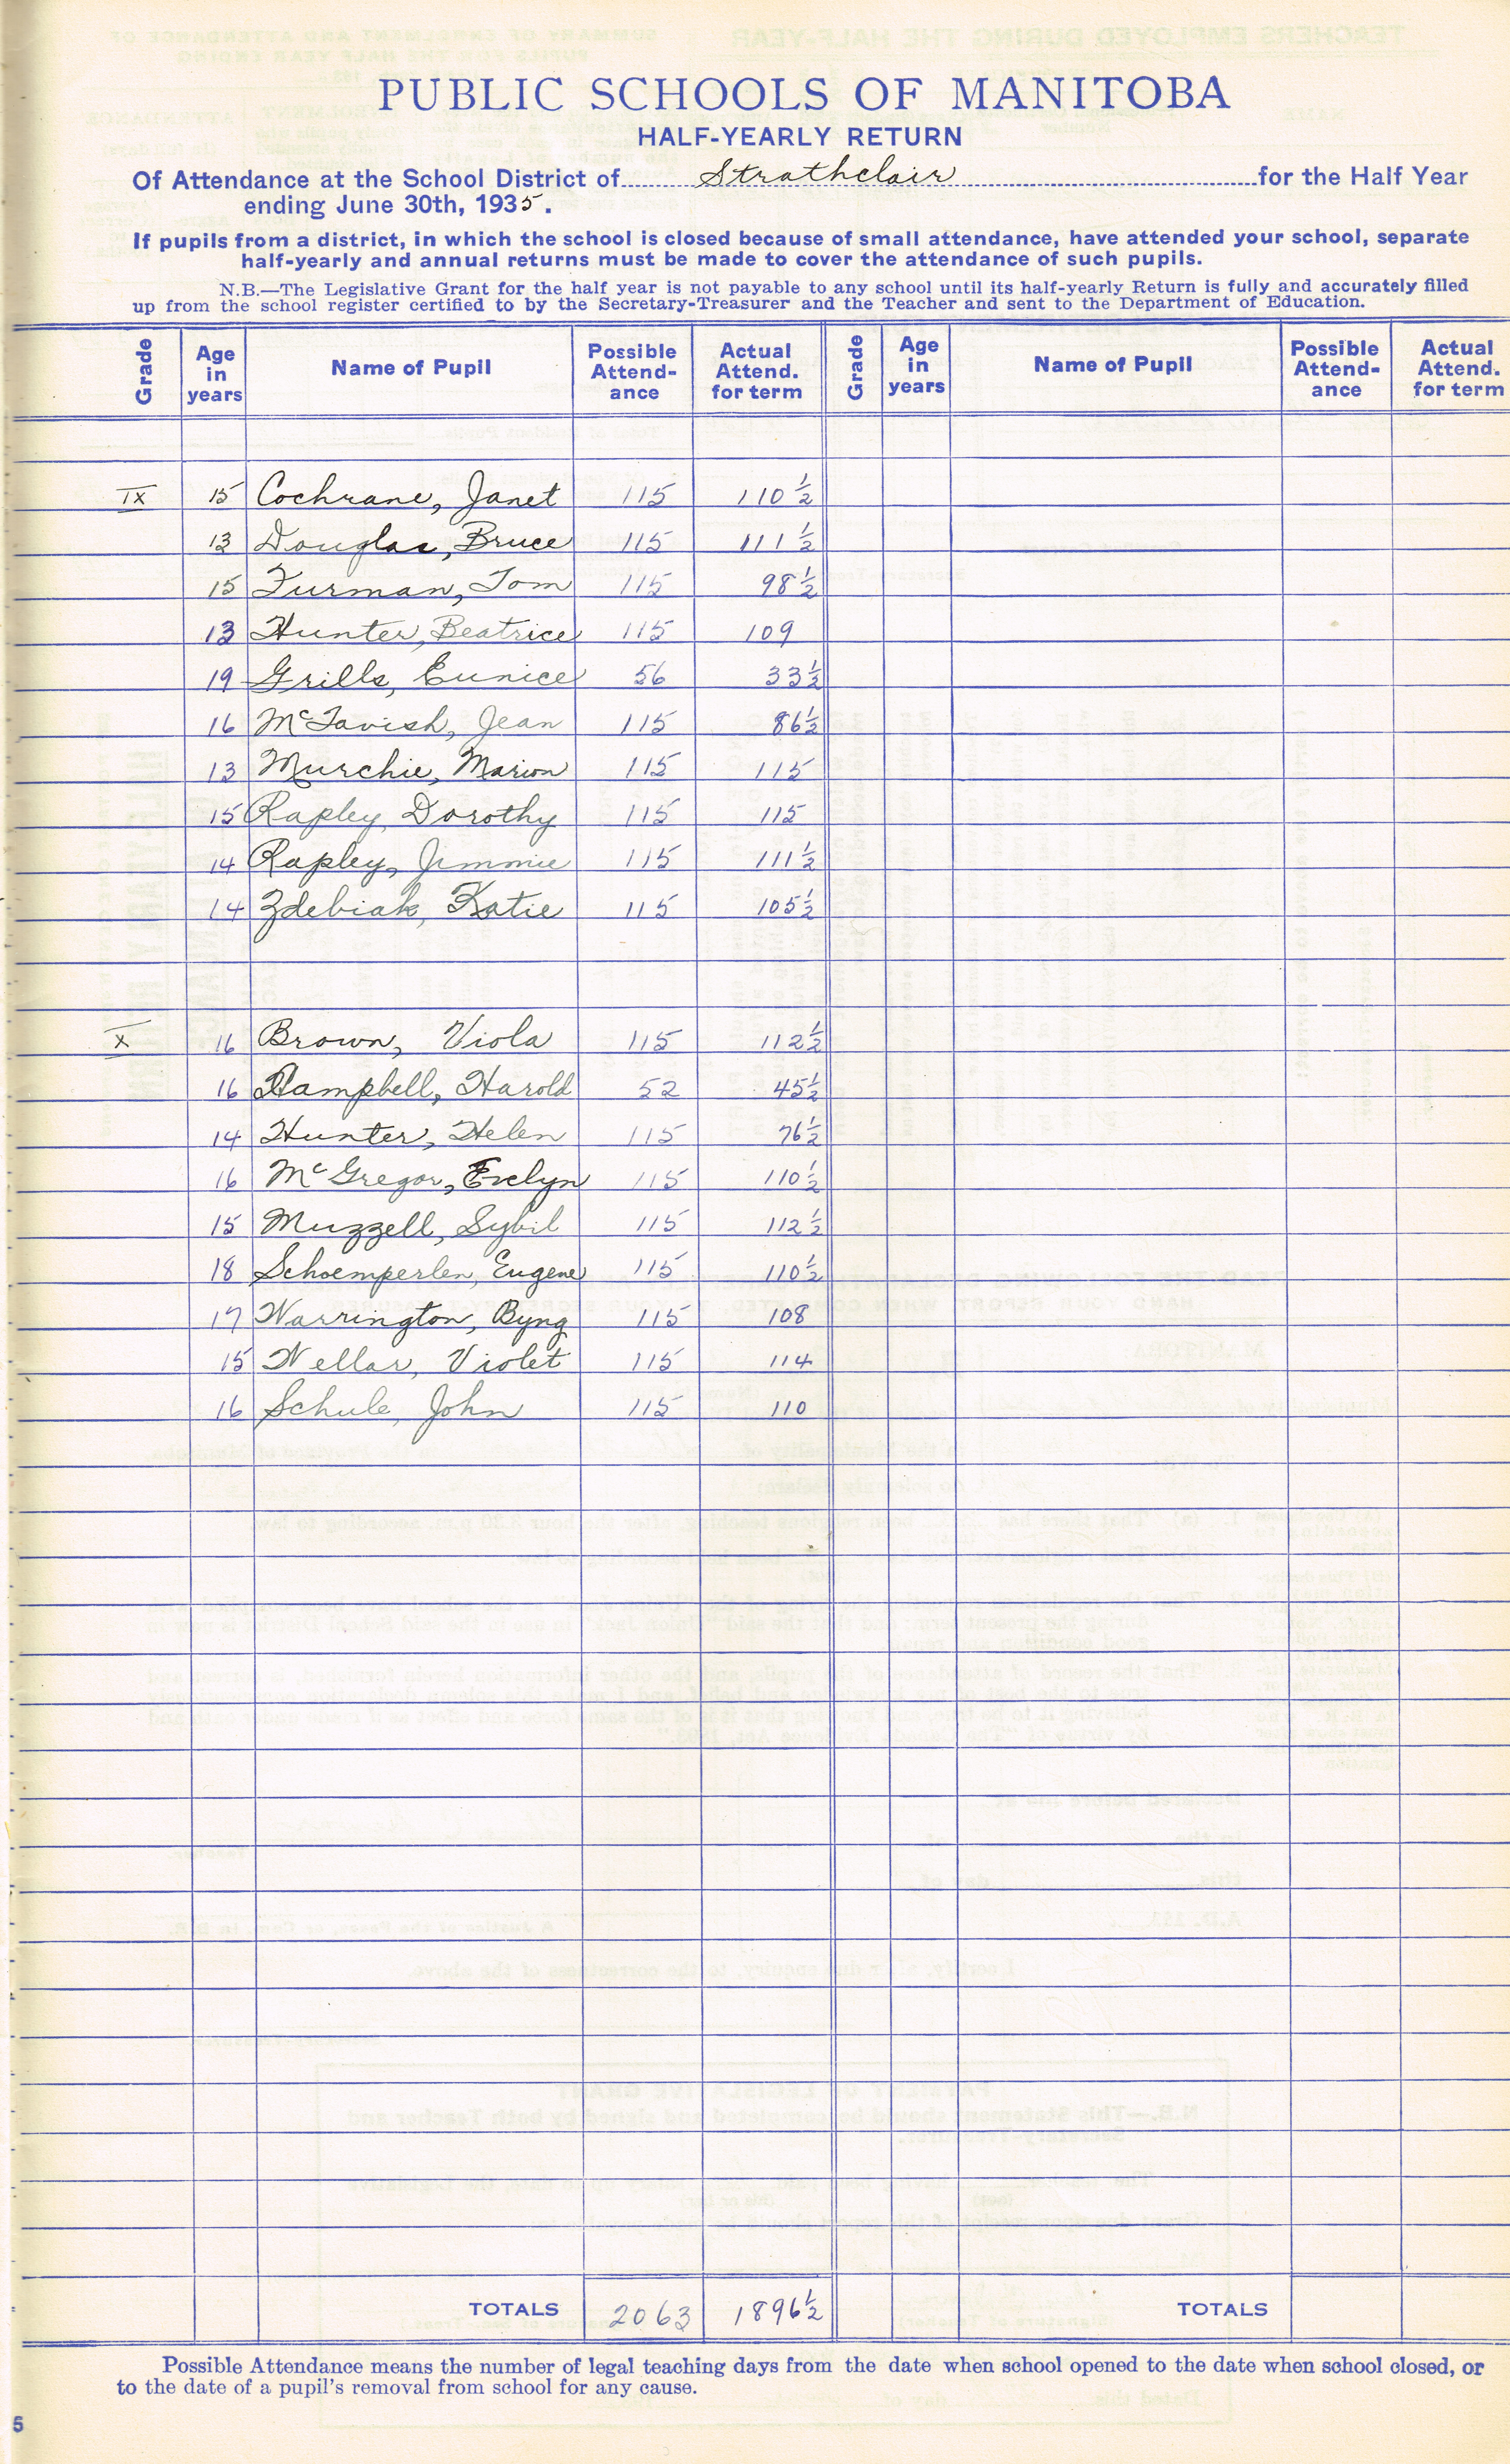 PUBLIC SCHOOLS OF MANITOBA
HALF-YEARLY RETURN
Of Attendance at the School District of Strathclair for the Half Year
ending June 30th, 1935.
If pupils from a district, in which the school is closed because of small attendance, have attended your school, separate
half-yearly and annual returns must be made to cover the attendance of such pupils.
N.B.—The Legislative Grant for the half year is not payable to any school until its half-yearly Return is fully and accurately filled
up from the school register certified to by the Secretary-Treasurer and the Teacher and sent to the Department of Education.
Grade Age in years Name of Pupil Possible Attend- ance Actual Attend. for term Grade Age in years Name of Pupil Possible Attend- ance Actual Attend. for term
IX 15 Cochrane, Janet 115 110 ½
13 Douglas, Bruce 115 111 ½
15 Furman, Tom 115 98 ½
13 Hunter, Beatrice 115 109
19 Grills, Eunice 56 33 ½
16 McTavish, Jean 115 86 ½
13 Murchie, Marion 115 115
15 Rapley, Dorothy 115 115
14 Rapley, Jimmie 115 111 ½
14 Zdebiak, Katie 115 105 ½
X 16 Brown, Viola 115 112 ½
16 Campbell, Harold 52 45 ½
14 Hunter, Helen 115 76 ½
16 McGregor, Evelyn 115 110 ½
15 Muzzell, Sybil 115 112 ½
18 Schoemperlen, Eugene 115 110 ½
17 Warrington, Byng 115 108
15 Wellar, Violet 115 114
16 Schule, John 115 110
TOTALS 2063 1896 ½ TOTALS
Possible Attendance means the number of legal teaching days from the date when school opened to the date when school closed, or
to the date of a pupil's removal from school for any cause.
5